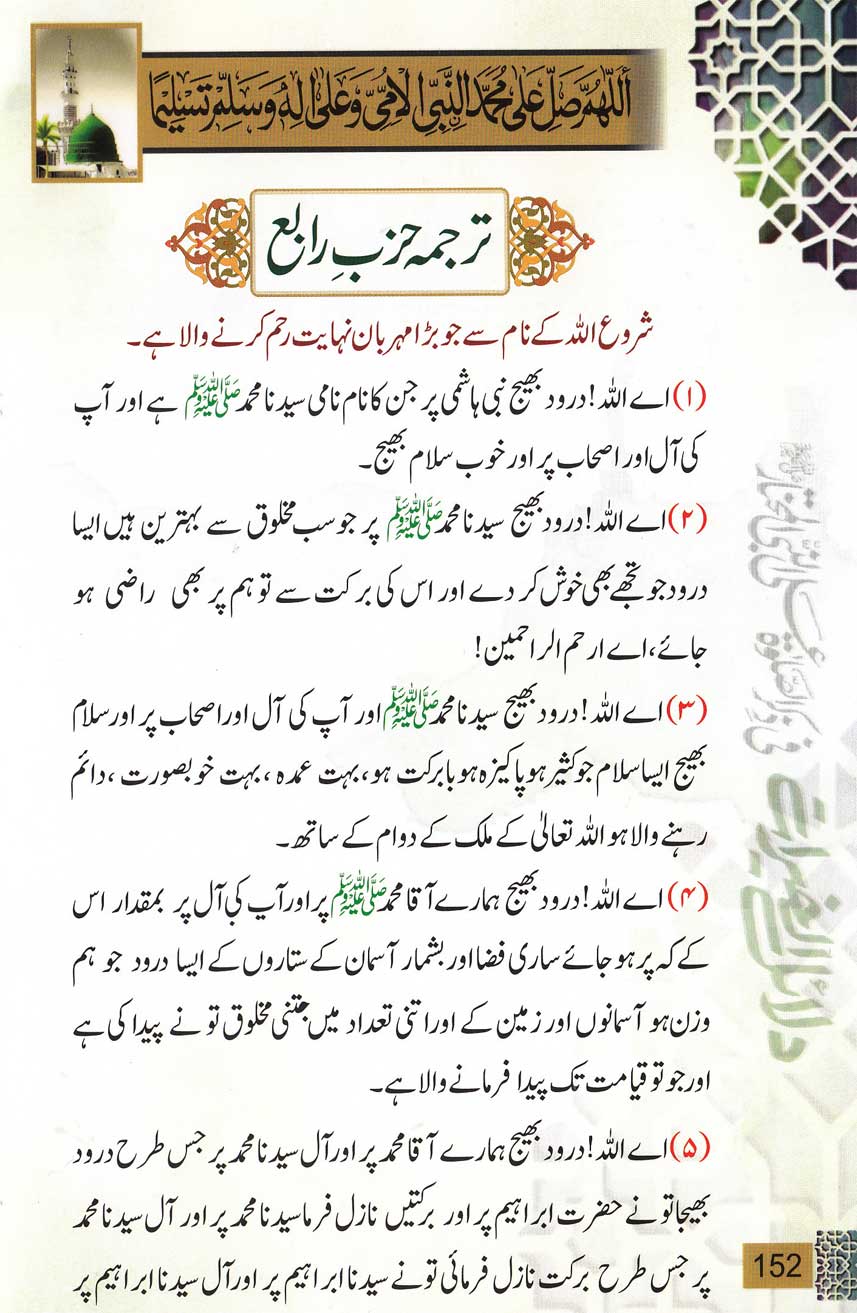 أللهم صل على محمد النبي الامي وعلى اله وسلم تسليما
ترجمہ حزبِ رابع
شروع اللہ کے نام سے جو بڑا مہربان نہایت رحم کرنے والا ہے۔
(۱) اے اللہ! درود بھیج نبی ہاشمی پر جن کا نام نامی سیدنا محمد ﷺ ہے اور آپ
کی آل اور اصحاب پر اور خوب سلام بھیج۔
(۲) اے اللہ! درود بھیج سیدنا محمد ﷺ پر جو سب مخلوق سے بہترین ہیں ایسا
درود جو تجھے بھی خوش کر دے اور اس کی برکت سے تو ہم پر بھی راضی ہو
جائے، اے ارحم الراحمین!
(۳) اے اللہ! درود بھیج سیدنا محمد ﷺ اور آپ کی آل اور اصحاب پر اور سلام
بھیج ایسا سلام جو کثیر ہو پاکیزہ ہو بابرکت ہو، بہت عمدہ، بہت خوبصورت، دائم
رہنے والا ہو اللہ تعالیٰ کے ملک کے دوام کے ساتھ۔
(۴) اے اللہ! درود بھیج ہمارے آقا محمد ﷺ پر اور آپ کی آل پر بمقدار اس
کے کہ پر ہو جائے ساری فضا اور بشمار آسمان کے ستاروں کے ایسا درود جو ہم
وزن ہو آسمانوں اور زمین کے اور اتنی تعداد میں جتنی مخلوق تو نے پیدا کی ہے
اور جو تو قیامت تک پیدا فرمانے والا ہے۔
(۵) اے اللہ! درود بھیج ہمارے آقا محمد پر اور آل سیدنا محمد پر جس طرح درود
بھیجا تو نے حضرت ابراہیم پر اور برکتیں نازل فرما سیدنا محمد پر اور آل سیدنا محمد
پر جس طرح برکت نازل فرمائی تو نے سیدنا ابراہیم پر اور آل سیدنا ابراہیم پر
دلائل الخیرات
152